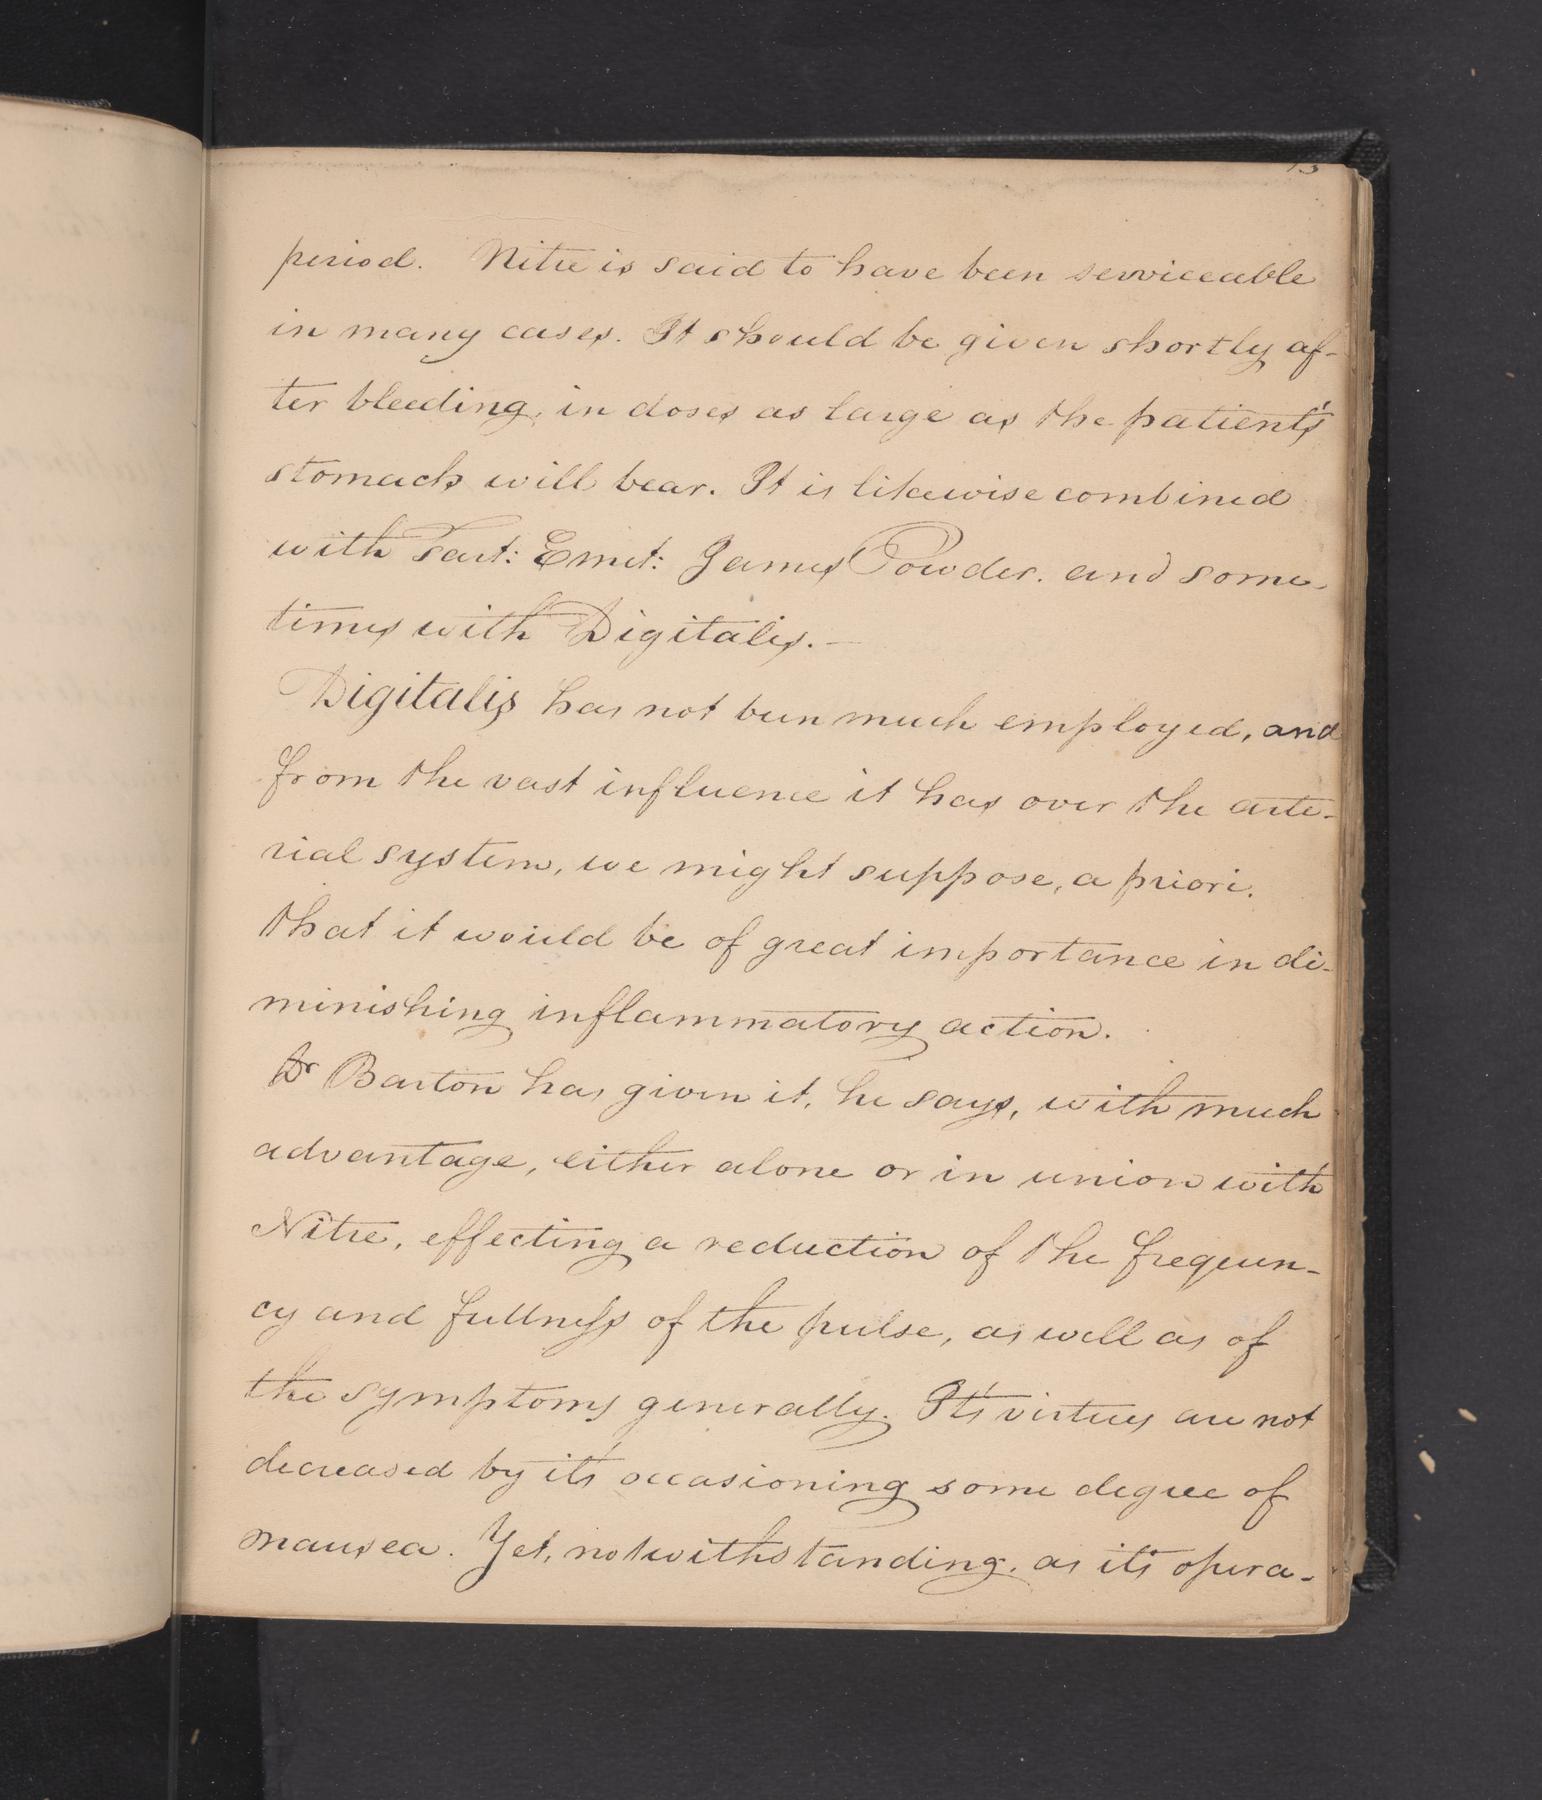 13
period. Nitre is said to have been serviceable
in many cases. It should be given shortly af-
ter bleeding, in doses as large as the patient's
stomach will bear. It is likewise combined
with Tart: Emet: James Powder. and some-
times with Digitalis. —
Digitalis has not been much employed, and
from the vast influence it has over the arte-
rial system, we might suppose, a priori.
that it would be of great importance in di-
minishing inflammatory action.
Dr Barton has given it, he says, with much
advantage, either alone or in union with
Nitre, effecting a reduction of the frequen-
cy and fullness of the pulse, as well as of
the symptoms generally. It's virtues are not
decreased by it's occasioning some degree of
nausea. Yet, notwithstanding, as it's opera-